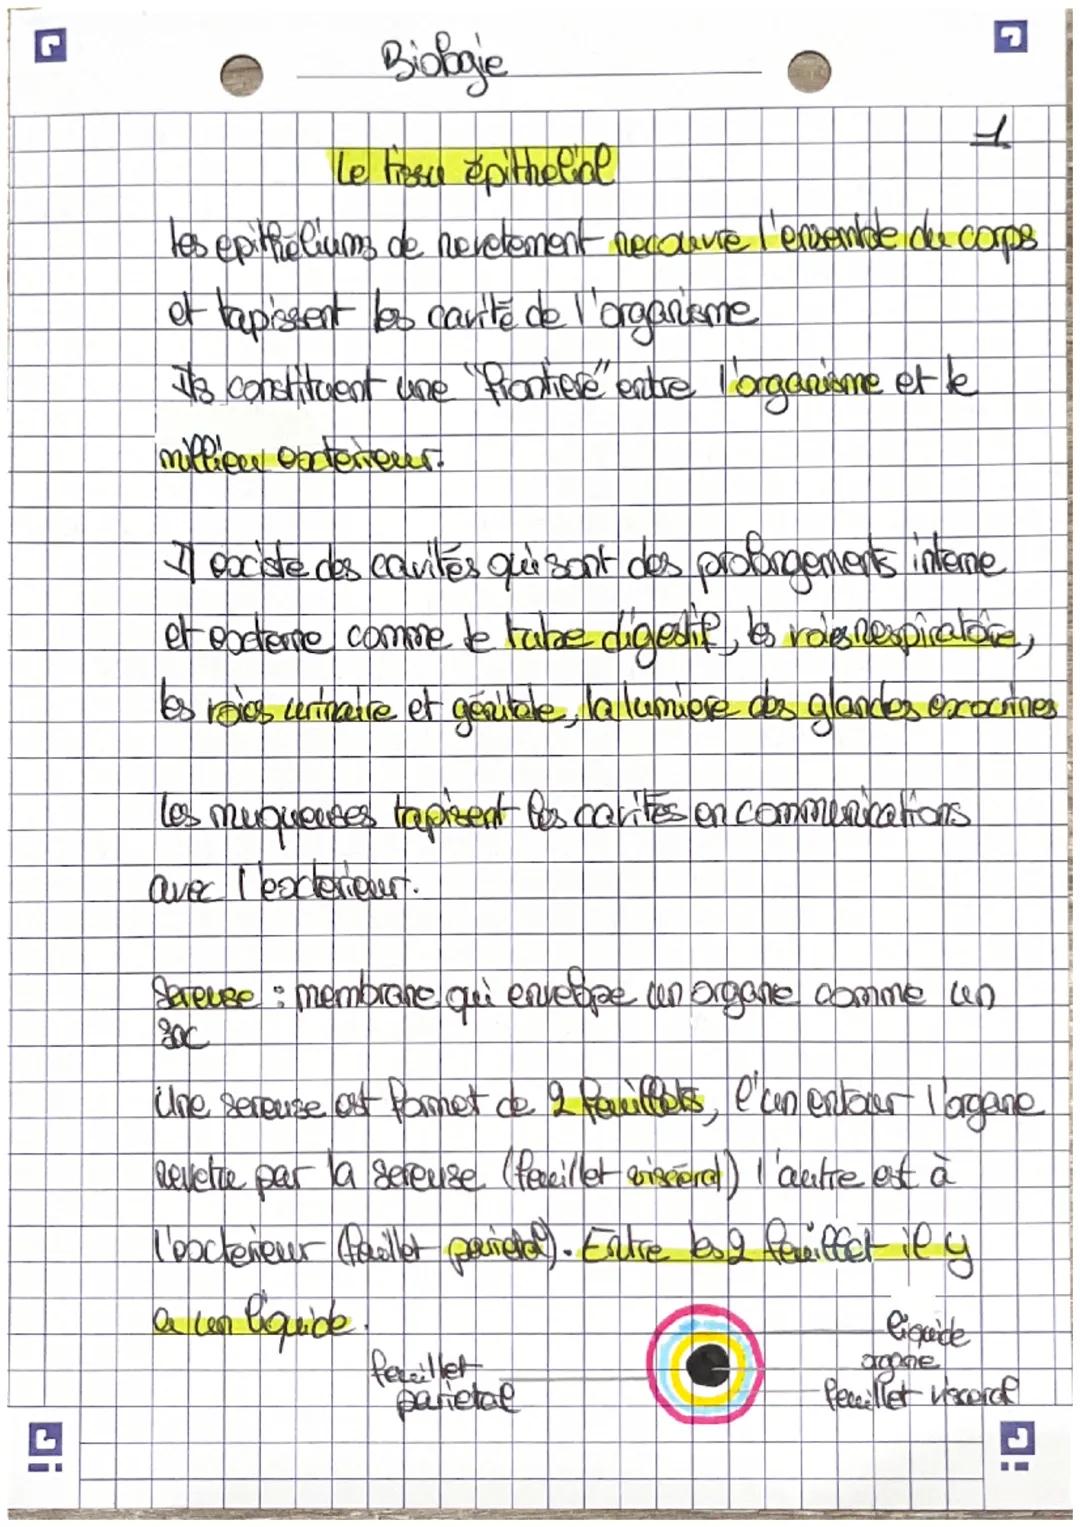 Biologie
1
Le tissu épithelial
les epithéliums de revetement recouvre l'ensemble du corps
et tapissent les cavité de l'organisme
Ils constituent une "frontiere" entre l'organisme et le
millieu exterieur.
Il existe des cavités qui sont des prolongements interne
et externe comme le tube digestif, les voies respiratoire,
les voies urinaire et génitale, la lumiere des glandes exocrines
Les muqueuses tapisent les cavités en communications
avec l'exterieur.
Sereuse : membrane qui enveloppe un organe comme un
sac
Une sereuse est formet de 2 feuillets, l'un entour l'organe
revetie par la sereuse (feuillet viscéral) l'autre est à
l'exterieur (feuillet parietal). Entre les 2 feuillet il y
a un liquide.
feuillet
parietal
liquide
organe
feuillet visceral